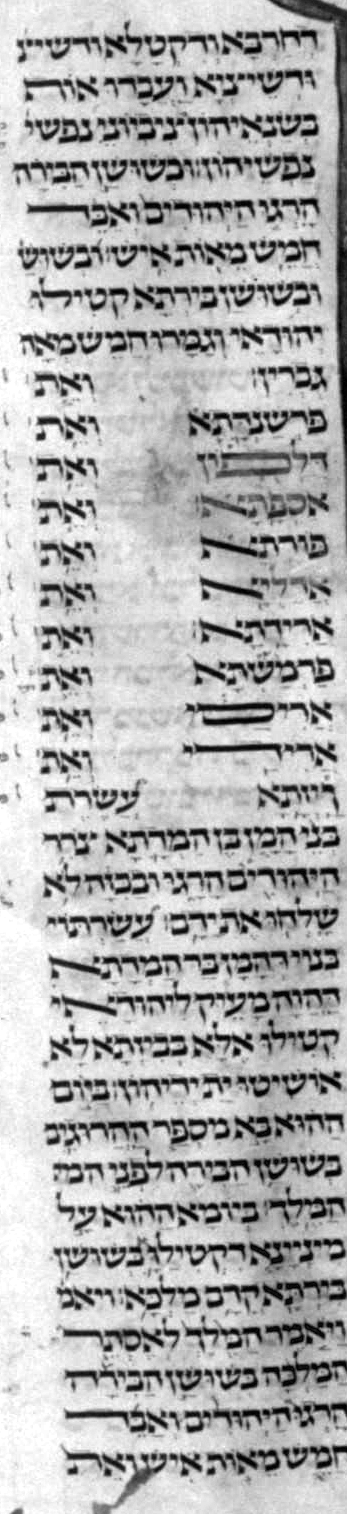 דחרבא ודקטלא ודשיצ
ודשיציא ועברו אות
בשנאיהון צביוני נפשי
נפשיהון ובשושן הבירה
הרגו היהודים ואבד
חמש מאות איש ובשוש
ובשושן בירתא קטילו
יהודאי וגמרו חמש מאה
גברין ואת
פרשנדתא ואת
דלפון ואת
אספתא ואת
פורתא ואת
אדליא ואת
ארידתא ואת
פרמשתא ואת
אריסי ואת
ארידי ואת
ויזתא עשרת
בני המן בן המדתא צרר
היהודים הרגו ובבזה לא
שלחו את ידם עשרתוי
בנוי דהמן בר המדתא
דהוה מעיק ליהודאי
קטילו אלא בביזתא לא
אושיטו ית ידיהון ביום
ההוא בא מספר ההרוגים
בשושן הבירה לפני המ
המלך ביומא ההוא על
מינינא דקטילו בשושן
בירתא קדם מלכא ויאמ
ויאמר המלך לאסתר
המלכה בשושן הבירה
הרגו היהודים ואבד
חמש מאות איש ואת